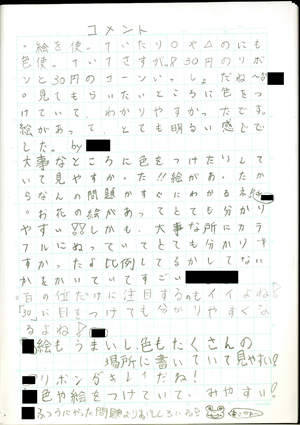 コメント
・絵を使っていたり○や△のにも
色使っていてさすが。830円のリボ
ンと30円のコーンいっしょだね〜
・見てもらいたいところに色をつ
けていて、わかりやすかったです。
絵があって、とても明るい感じで
した。by
大事なところに色をつけたりして
いて見やすかった!!絵があったか
らなんの問題かすぐにわかるネ
・お花の絵があってとても分かり
やすい!!しかも、大事な所にカラ
フルにぬっていてとても分かりや
すかったよ比例してるかしてない
かをかいていてすごい
百の位だけに注目するのもイイよね
「30」に目をつけても分かりやすくな
るよね
絵もうまいし、色もたくさんの
場所に書いていて見やすい!
リボンがキレイだね!
色や絵を使っていて、みやすい!